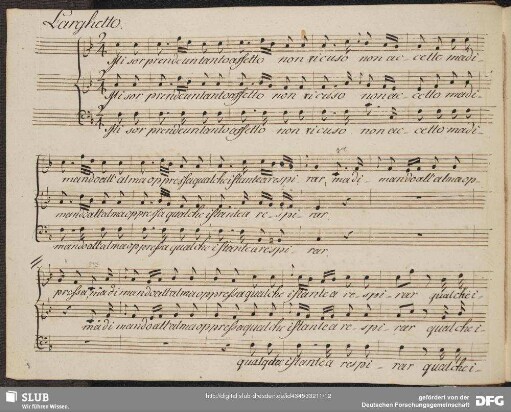 Larghetto.
Mi sorprende un tanto affetto non ricuso non accetto ma di-
Mi sorprende un tanto affetto non ricuso non accetto ma di-
Mi sorprende un tanto affetto non ricuso non accetto ma di-
mando all'alma oppressa qualche istante a respirar, ma di- mando all'alma op-
mando all'alma oppressa qualche istante a re- spi- rar
mando all'alma oppressa qualche istante a respi- rar
pressa ma di mando all'alma oppressa qualche istante a re- spi- rar qualche i-
ma di mando all'alma oppressa qualche istante a respi- rar qualche i-
qualche istante a respi- rar qualche i-
SLUB
Wir führen Wissen.
http://digital.slub-dresden.de/id434933211/12
gefördert von der
Deutschen Forschungsgemeinschaft
DFG